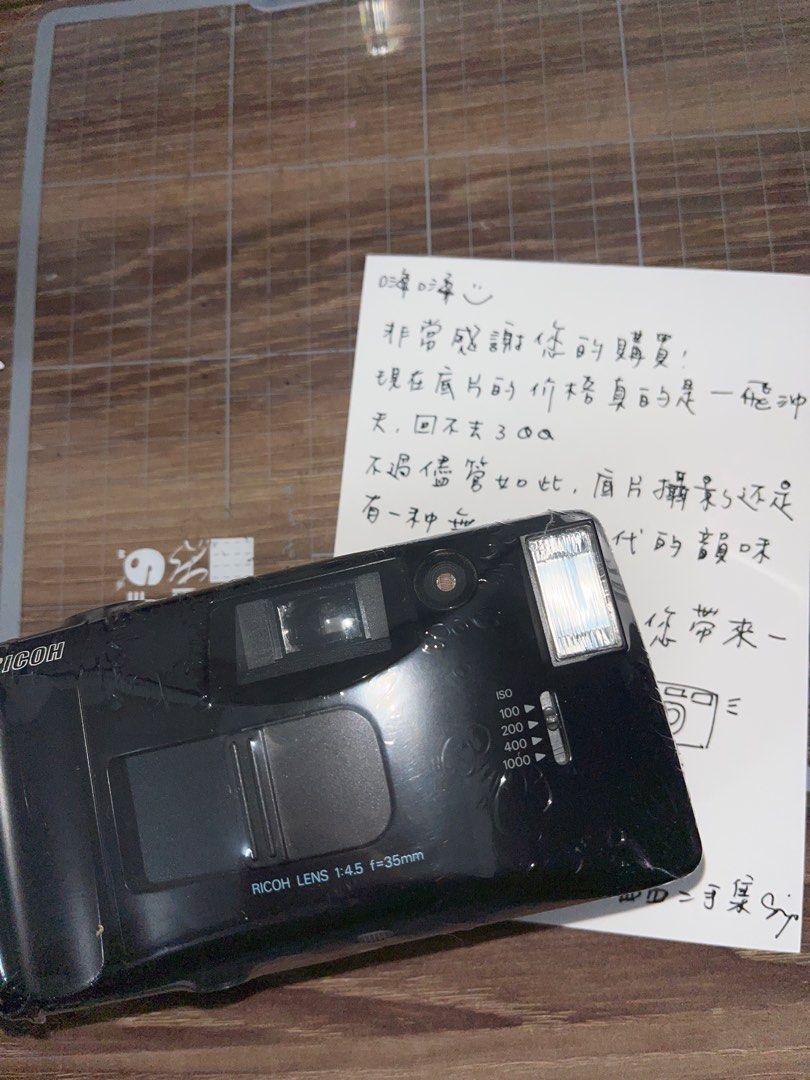 嗨嗨
非常感謝您的購買!
現在底片的价格真的是一飛沖
天,回不去了QQ
不過儘管如此,底片攝影還是
有一种無
代的韻味
您帶來一
二手集
RICOH
ISO
100
200
400
1000
RICOH LENS 1:4.5 f=35mm